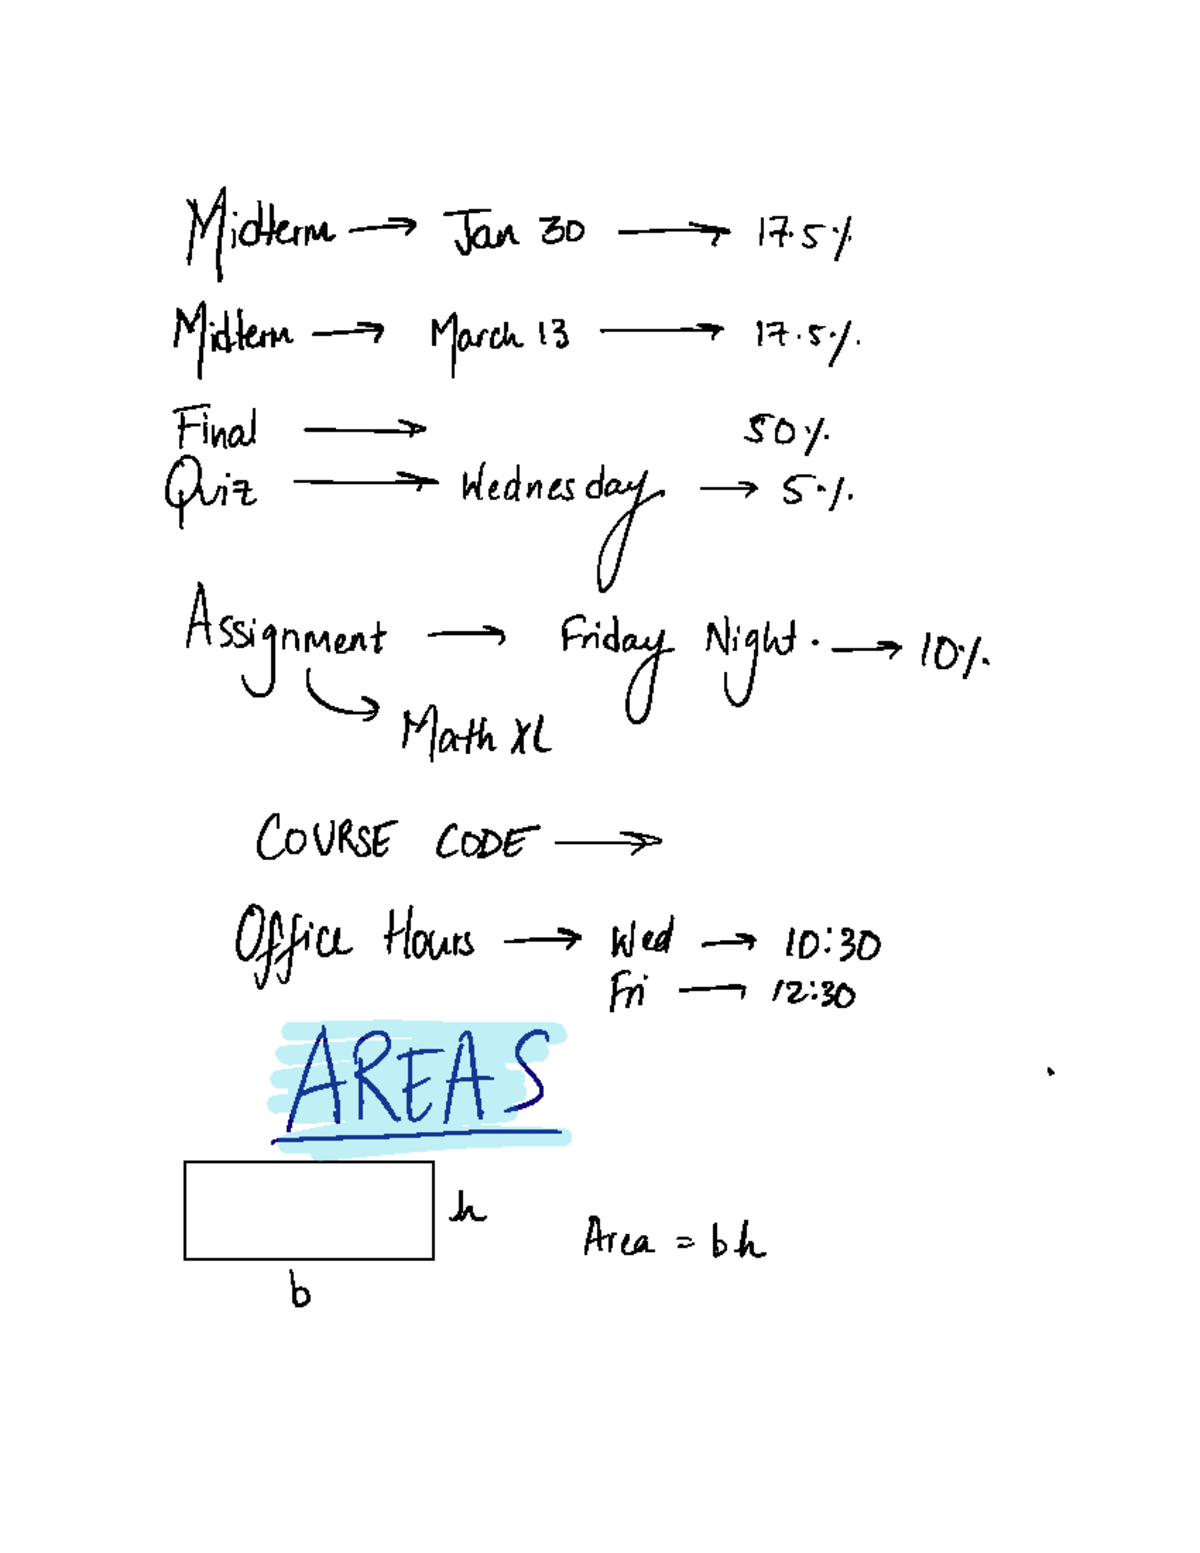 Midterm → Jan 30 → 17.5%
Midterm → March 13 → 17.5%
Final → 50%
Quiz → Wednesday → 5%
Assignment → Friday Night. → 10%
→ Math XL
COURSE CODE →
Office Hours → Wed → 10:30
Fri → 12:30
AREAS
h
Area = bh
b